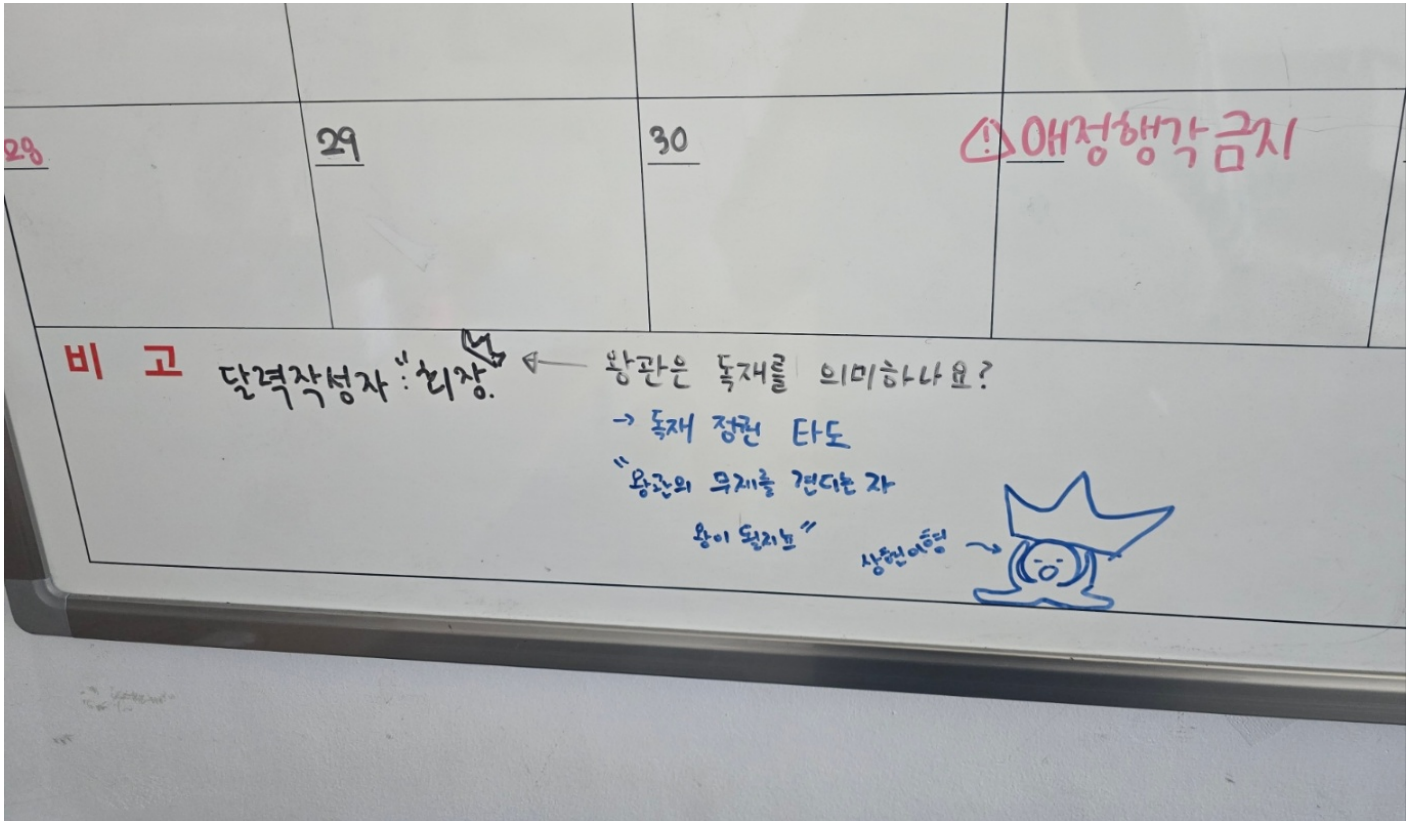 28
29
30
⚠애정행각금지
비 고
달력작성자 : "회장.
← 왕관은 독재를 의미하나요?
→ 독재 정권 타도
"왕관의 무게를 견디는 자
왕이 될지뇨"
상헌이형 →